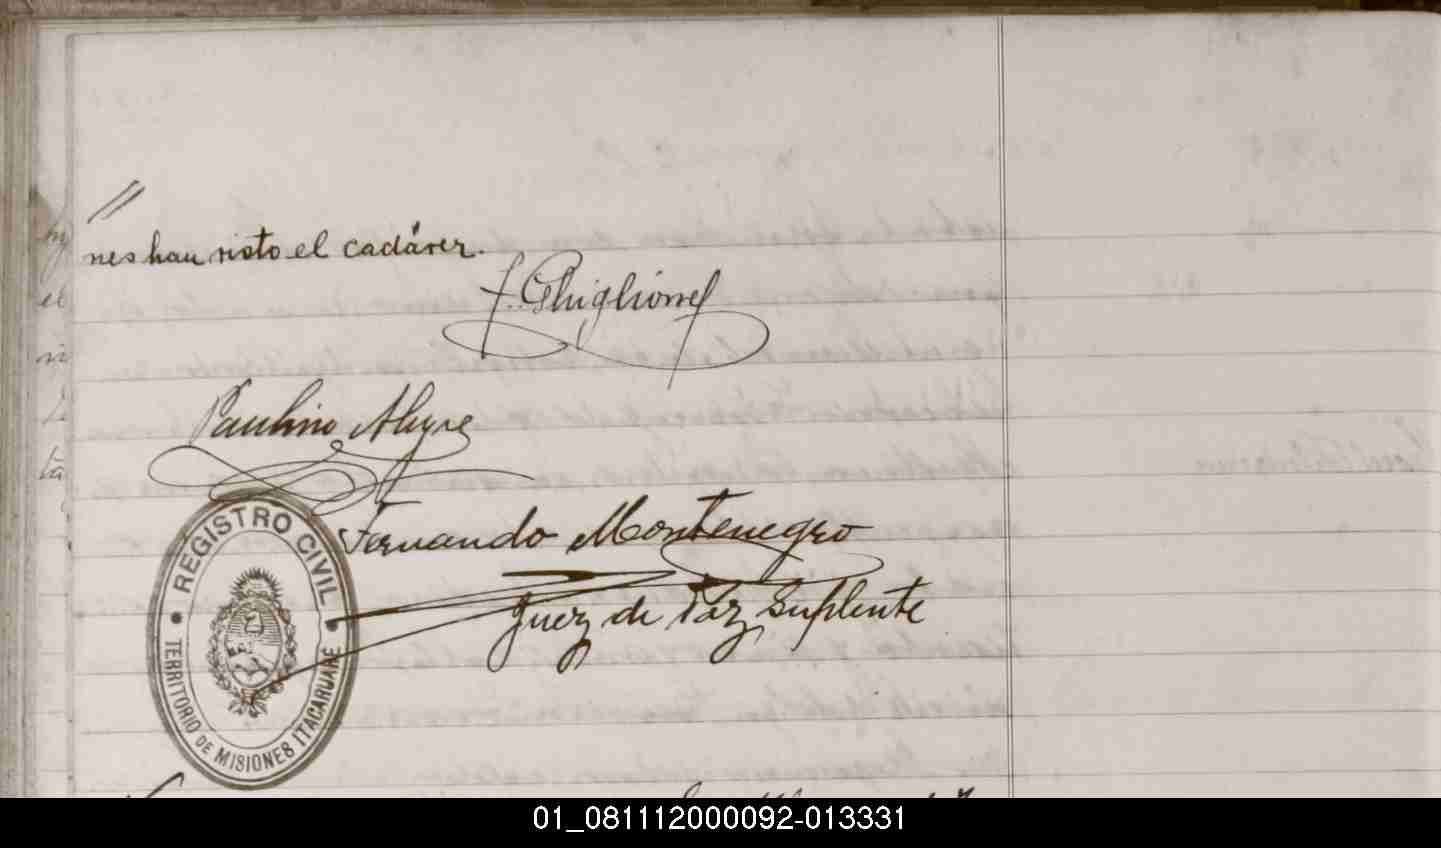 //
nes han visto el cadáver.
F. Ghiglione
Paulino Alegre
Fernando Montenegro
Juez de Paz Suplente
REGISTRO CIVIL
TERRITORIO DE MISIONES ITACARUARÉ
01_081112000092-013331